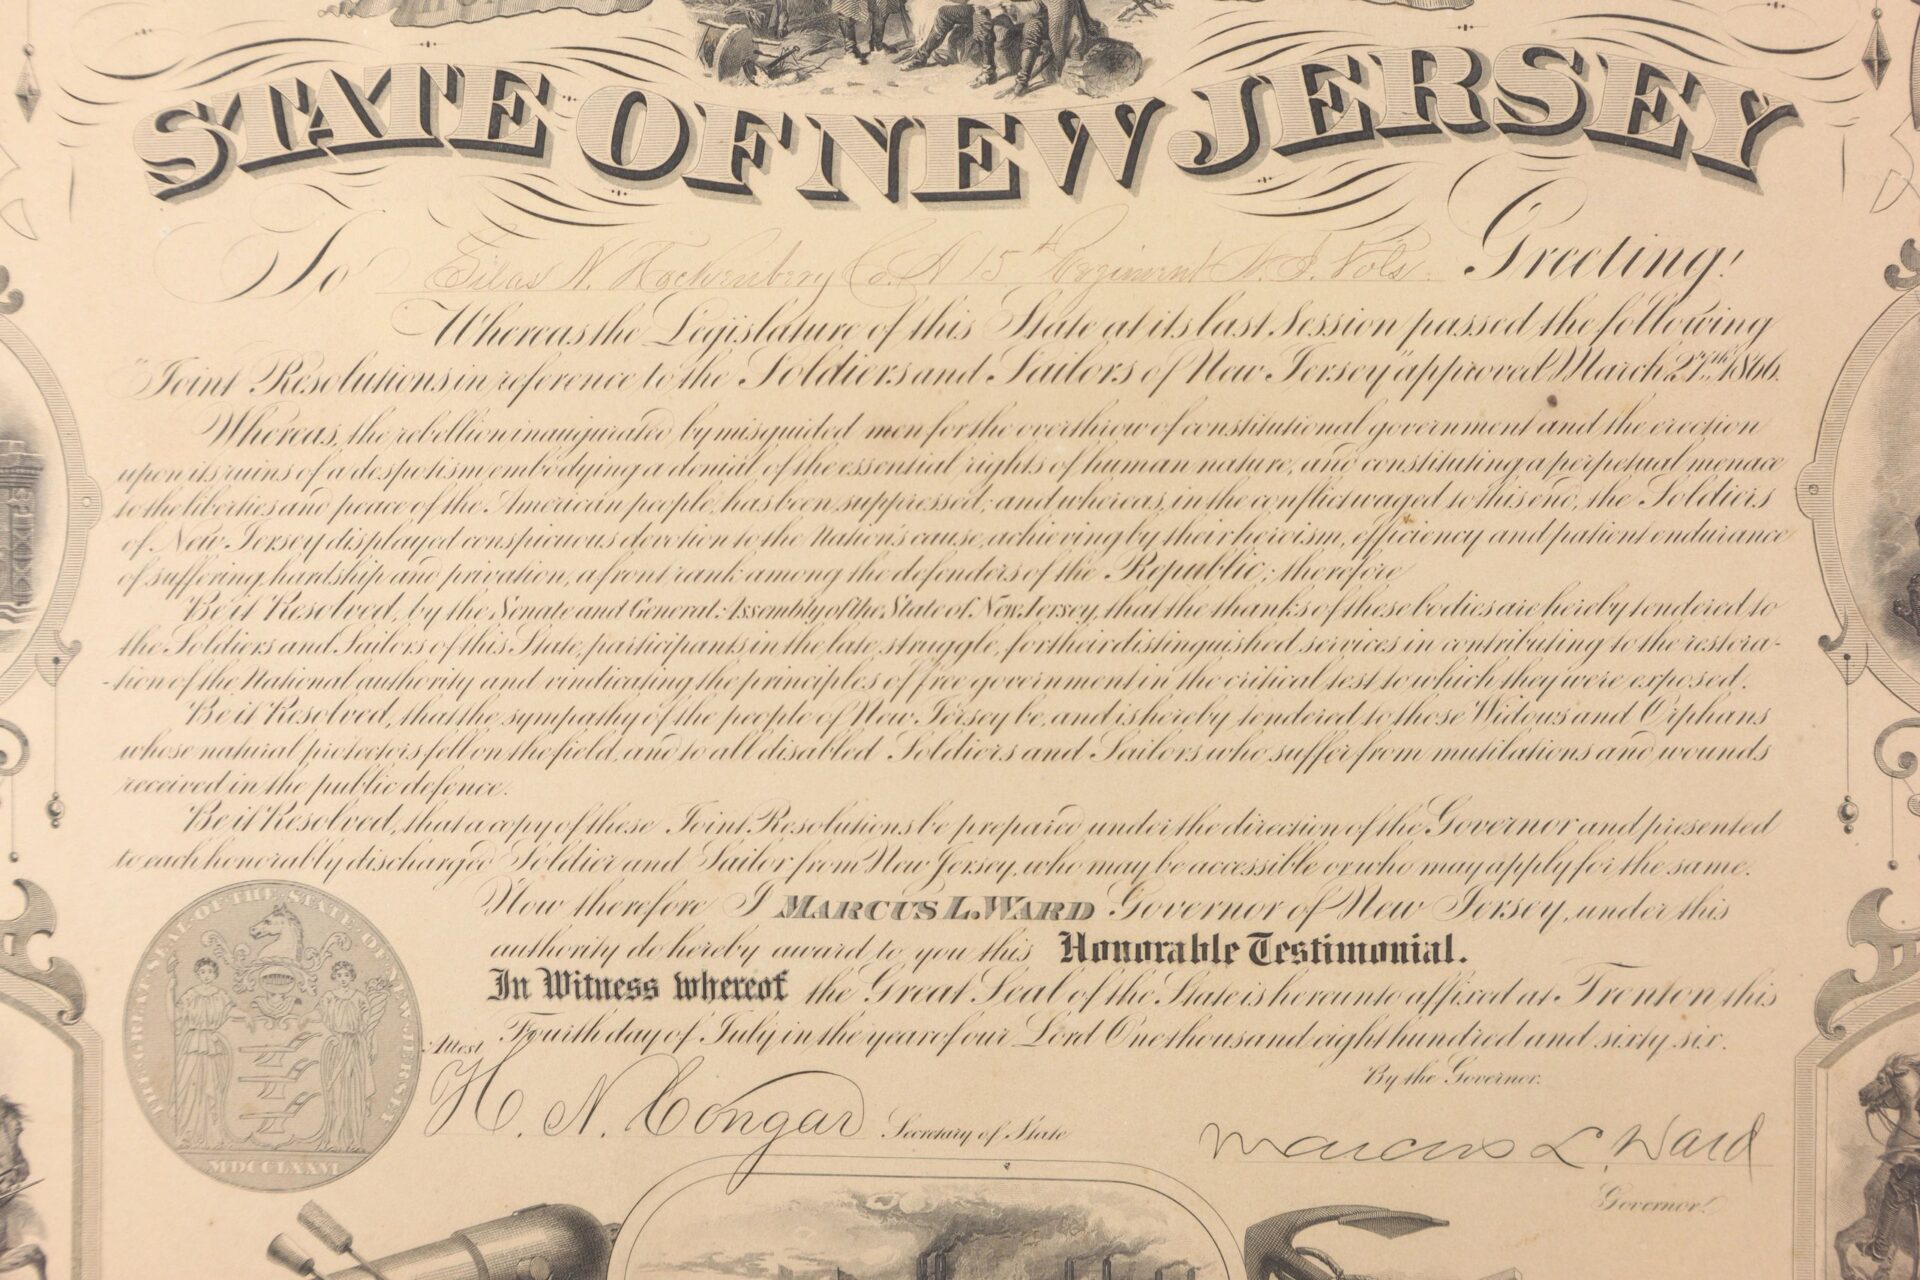 STATE OF NEW JERSEY
To Silas N. Hockenbery Co. A 15th Regiment N. J. Vols. Greeting!
Whereas the Legislature of this State at its last Session passed the following
"Joint Resolutions in reference to the Soldiers and Sailors of New Jersey" approved March 27th, 1866.
Whereas, the rebellion inaugurated by misguided men for the overthrow of constitutional government and the erection
upon its ruins of a despotism embodying a denial of the essential rights of human nature, and constituting a perpetual menace
to the liberties and peace of the American people, has been suppressed; and whereas, in the conflict waged to this end, the Soldiers
of New Jersey displayed conspicuous devotion to the Nation's cause, achieving by their heroism, efficiency and patient endurance
of suffering, hardship and privation, a front rank among the defenders of the Republic; therefore
Be it Resolved, by the Senate and General Assembly of the State of New Jersey, that the thanks of these bodies are hereby tendered to
the Soldiers and Sailors of this State, participants in the late struggle, for their distinguished services in contributing to the restora-
-tion of the National authority and vindicating the principles of free government in the critical test to which they were exposed.
Be it Resolved, that the sympathy of the people of New Jersey be, and is hereby tendered to those Widows and Orphans
whose natural protectors fell on the field, and to all disabled Soldiers and Sailors who suffer from mutilations and wounds
received in the public defence.
Be it Resolved, that a copy of these Joint Resolutions be prepared under the direction of the Governor and presented
to each honorably discharged Soldier and Sailor from New Jersey, who may be accessible or who may apply for the same.
Now therefore I MARCUS L. WARD Governor of New Jersey, under this
authority do hereby award to you this Honorable Testimonial.
In Witness whereof the Great Seal of the State is hereunto affixed at Trenton this
Fourth day of July in the year of our Lord One thousand eight hundred and sixty six.
Attest
By the Governor.
H. N. Congar Secretary of State
Marcus L. Ward
Governor.
THE GREAT SEAL OF THE STATE OF NEW JERSEY
MDCCLXXVI